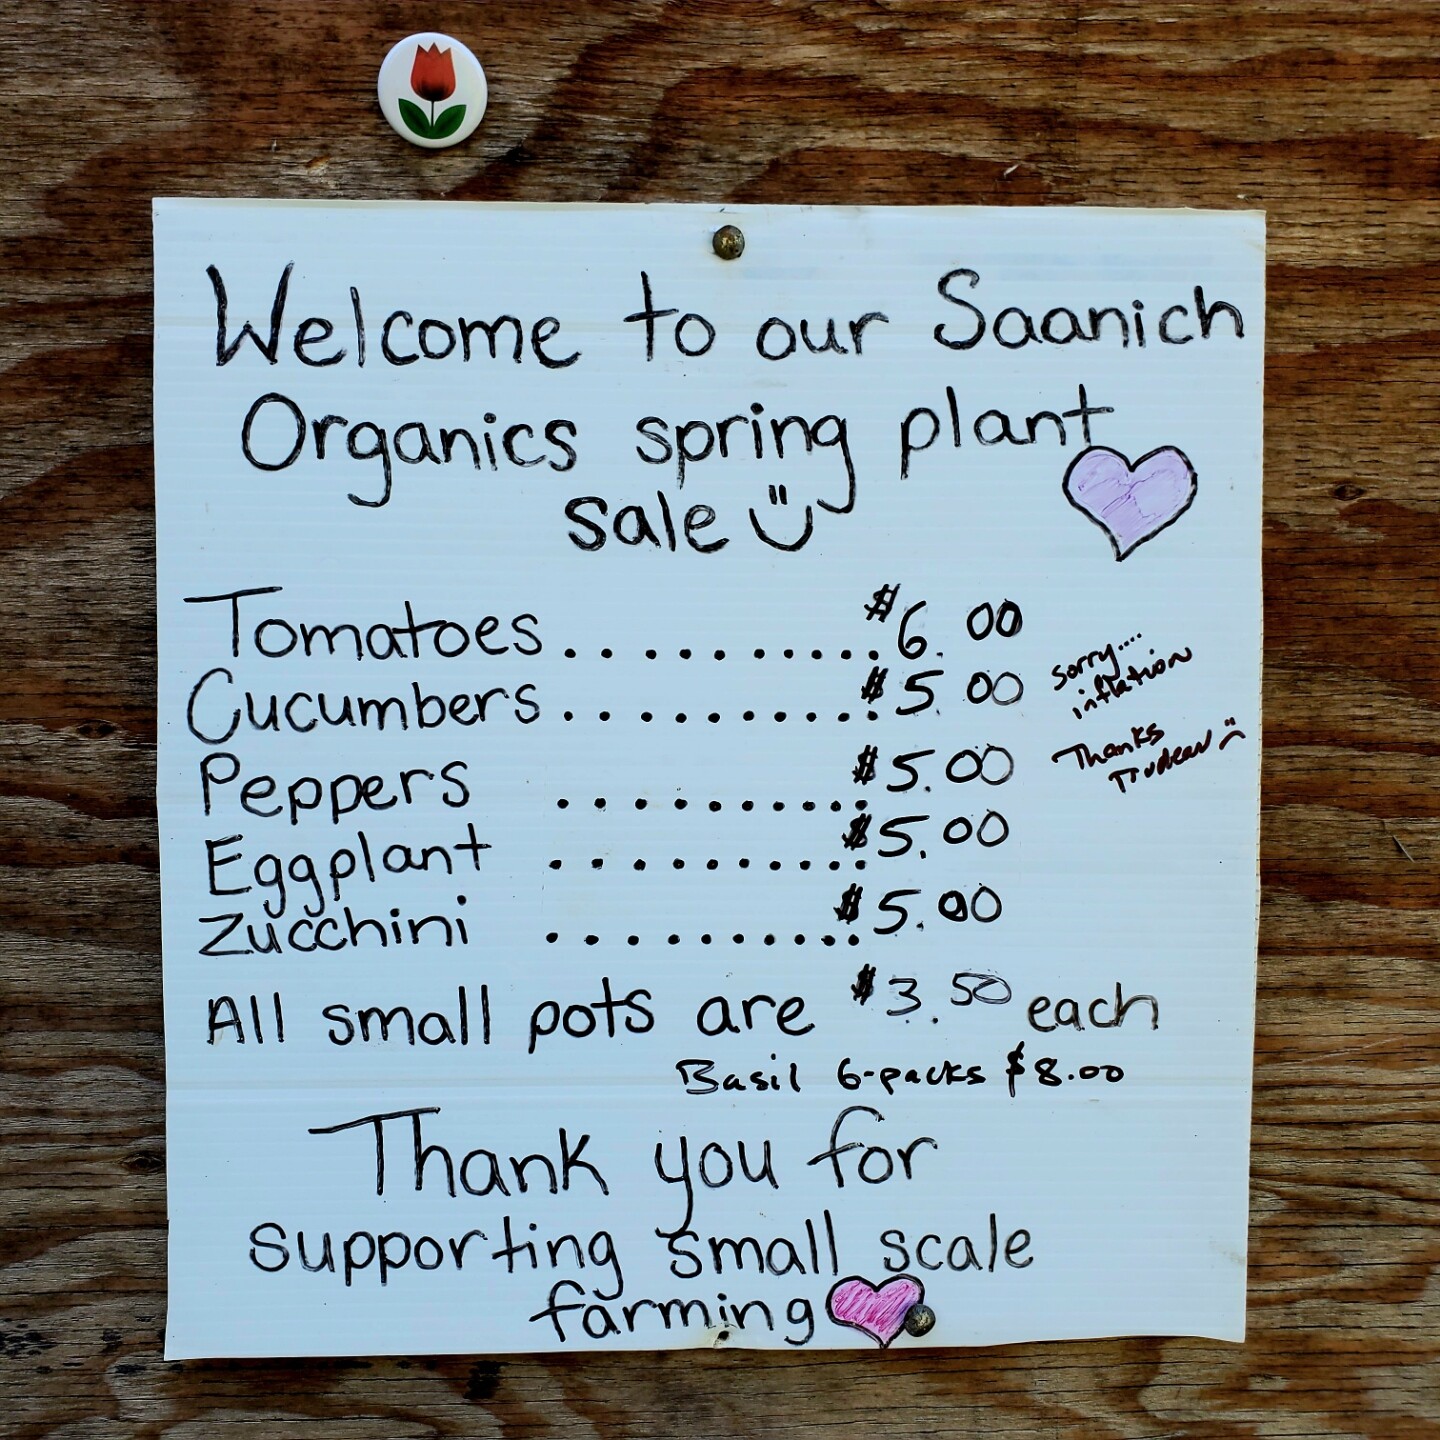 Welcome to our Saanich
Organics spring plant
sale
Tomatoes..........$6.00
Cucumbers..........$5.00
sorry....
inflation
Peppers ..........$5.00
Thanks
Trudeau
Eggplant ..........$5.00
Zucchini ..........$5.00
All small pots are $3.50 each
Basil 6-packs $8.00
Thank you for
supporting small scale
farming